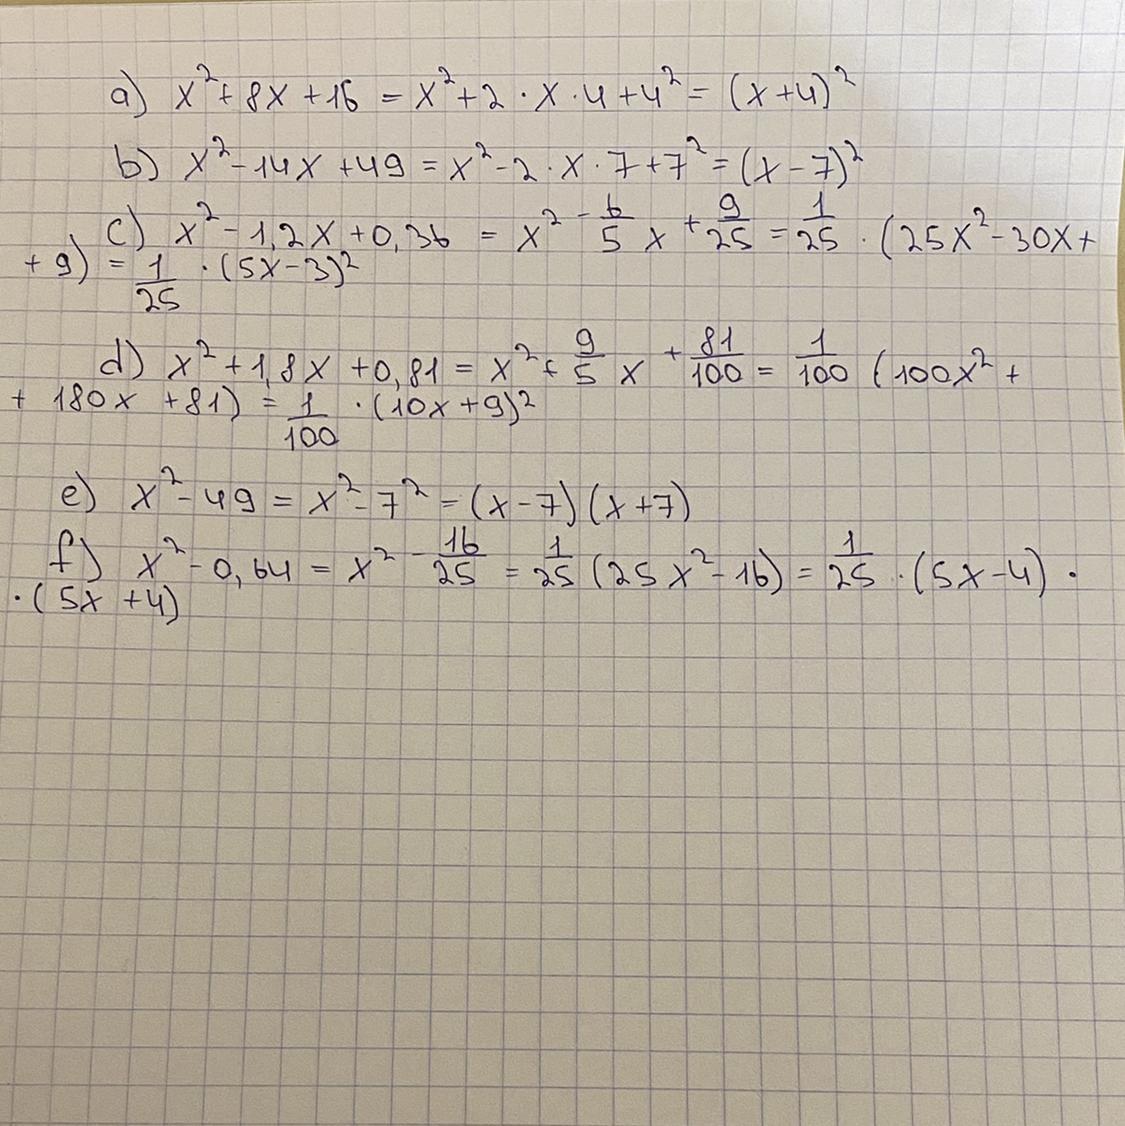 a) x² + 8x + 16 = x² + 2 · x · 4 + 4² = (x + 4)²
b) x² - 14x + 49 = x² - 2 · x · 7 + 7² = (x - 7)²
c) x² - 1,2x + 0,36 = x² - 6/5 x + 9/25 = 1/25 · (25x² - 30x +
+ 9) = 1/25 · (5x - 3)²
d) x² + 1,8x + 0,81 = x² + 9/5 x + 81/100 = 1/100 (100x² +
+ 180x + 81) = 1/100 · (10x + 9)²
e) x² - 49 = x² - 7² = (x - 7) (x + 7)
f) x² - 0,64 = x² - 16/25 = 1/25 (25x² - 16) = 1/25 · (5x - 4) ·
· (5x + 4)